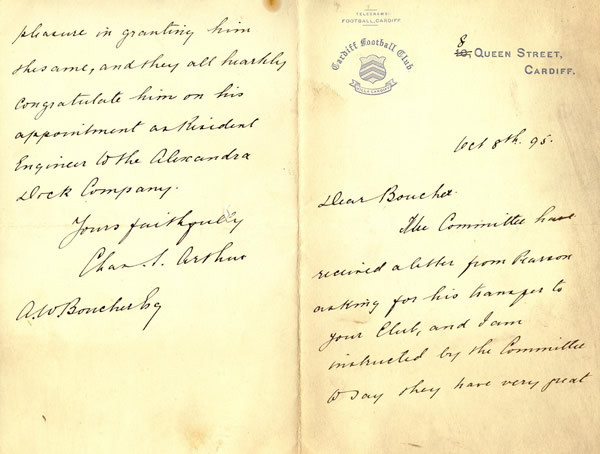 TELEGRAMS:
FOOTBALL, CARDIFF
Cardiff Football Club
8
10, QUEEN STREET,
CARDIFF.
Oct 8th. 95.
Dear Boucher.
The Committee have
received a letter from Pearson
asking for his transfer to
your Club, and I am
instructed by the Committee
to say they have very great
pleasure in granting him
the same, and they all heartily
congratulate him on his
appointment as Resident
Engineer to the Alexandra
Dock Company.
Yours faithfully
Chas. S. Arthur
A.W Boucher Esq